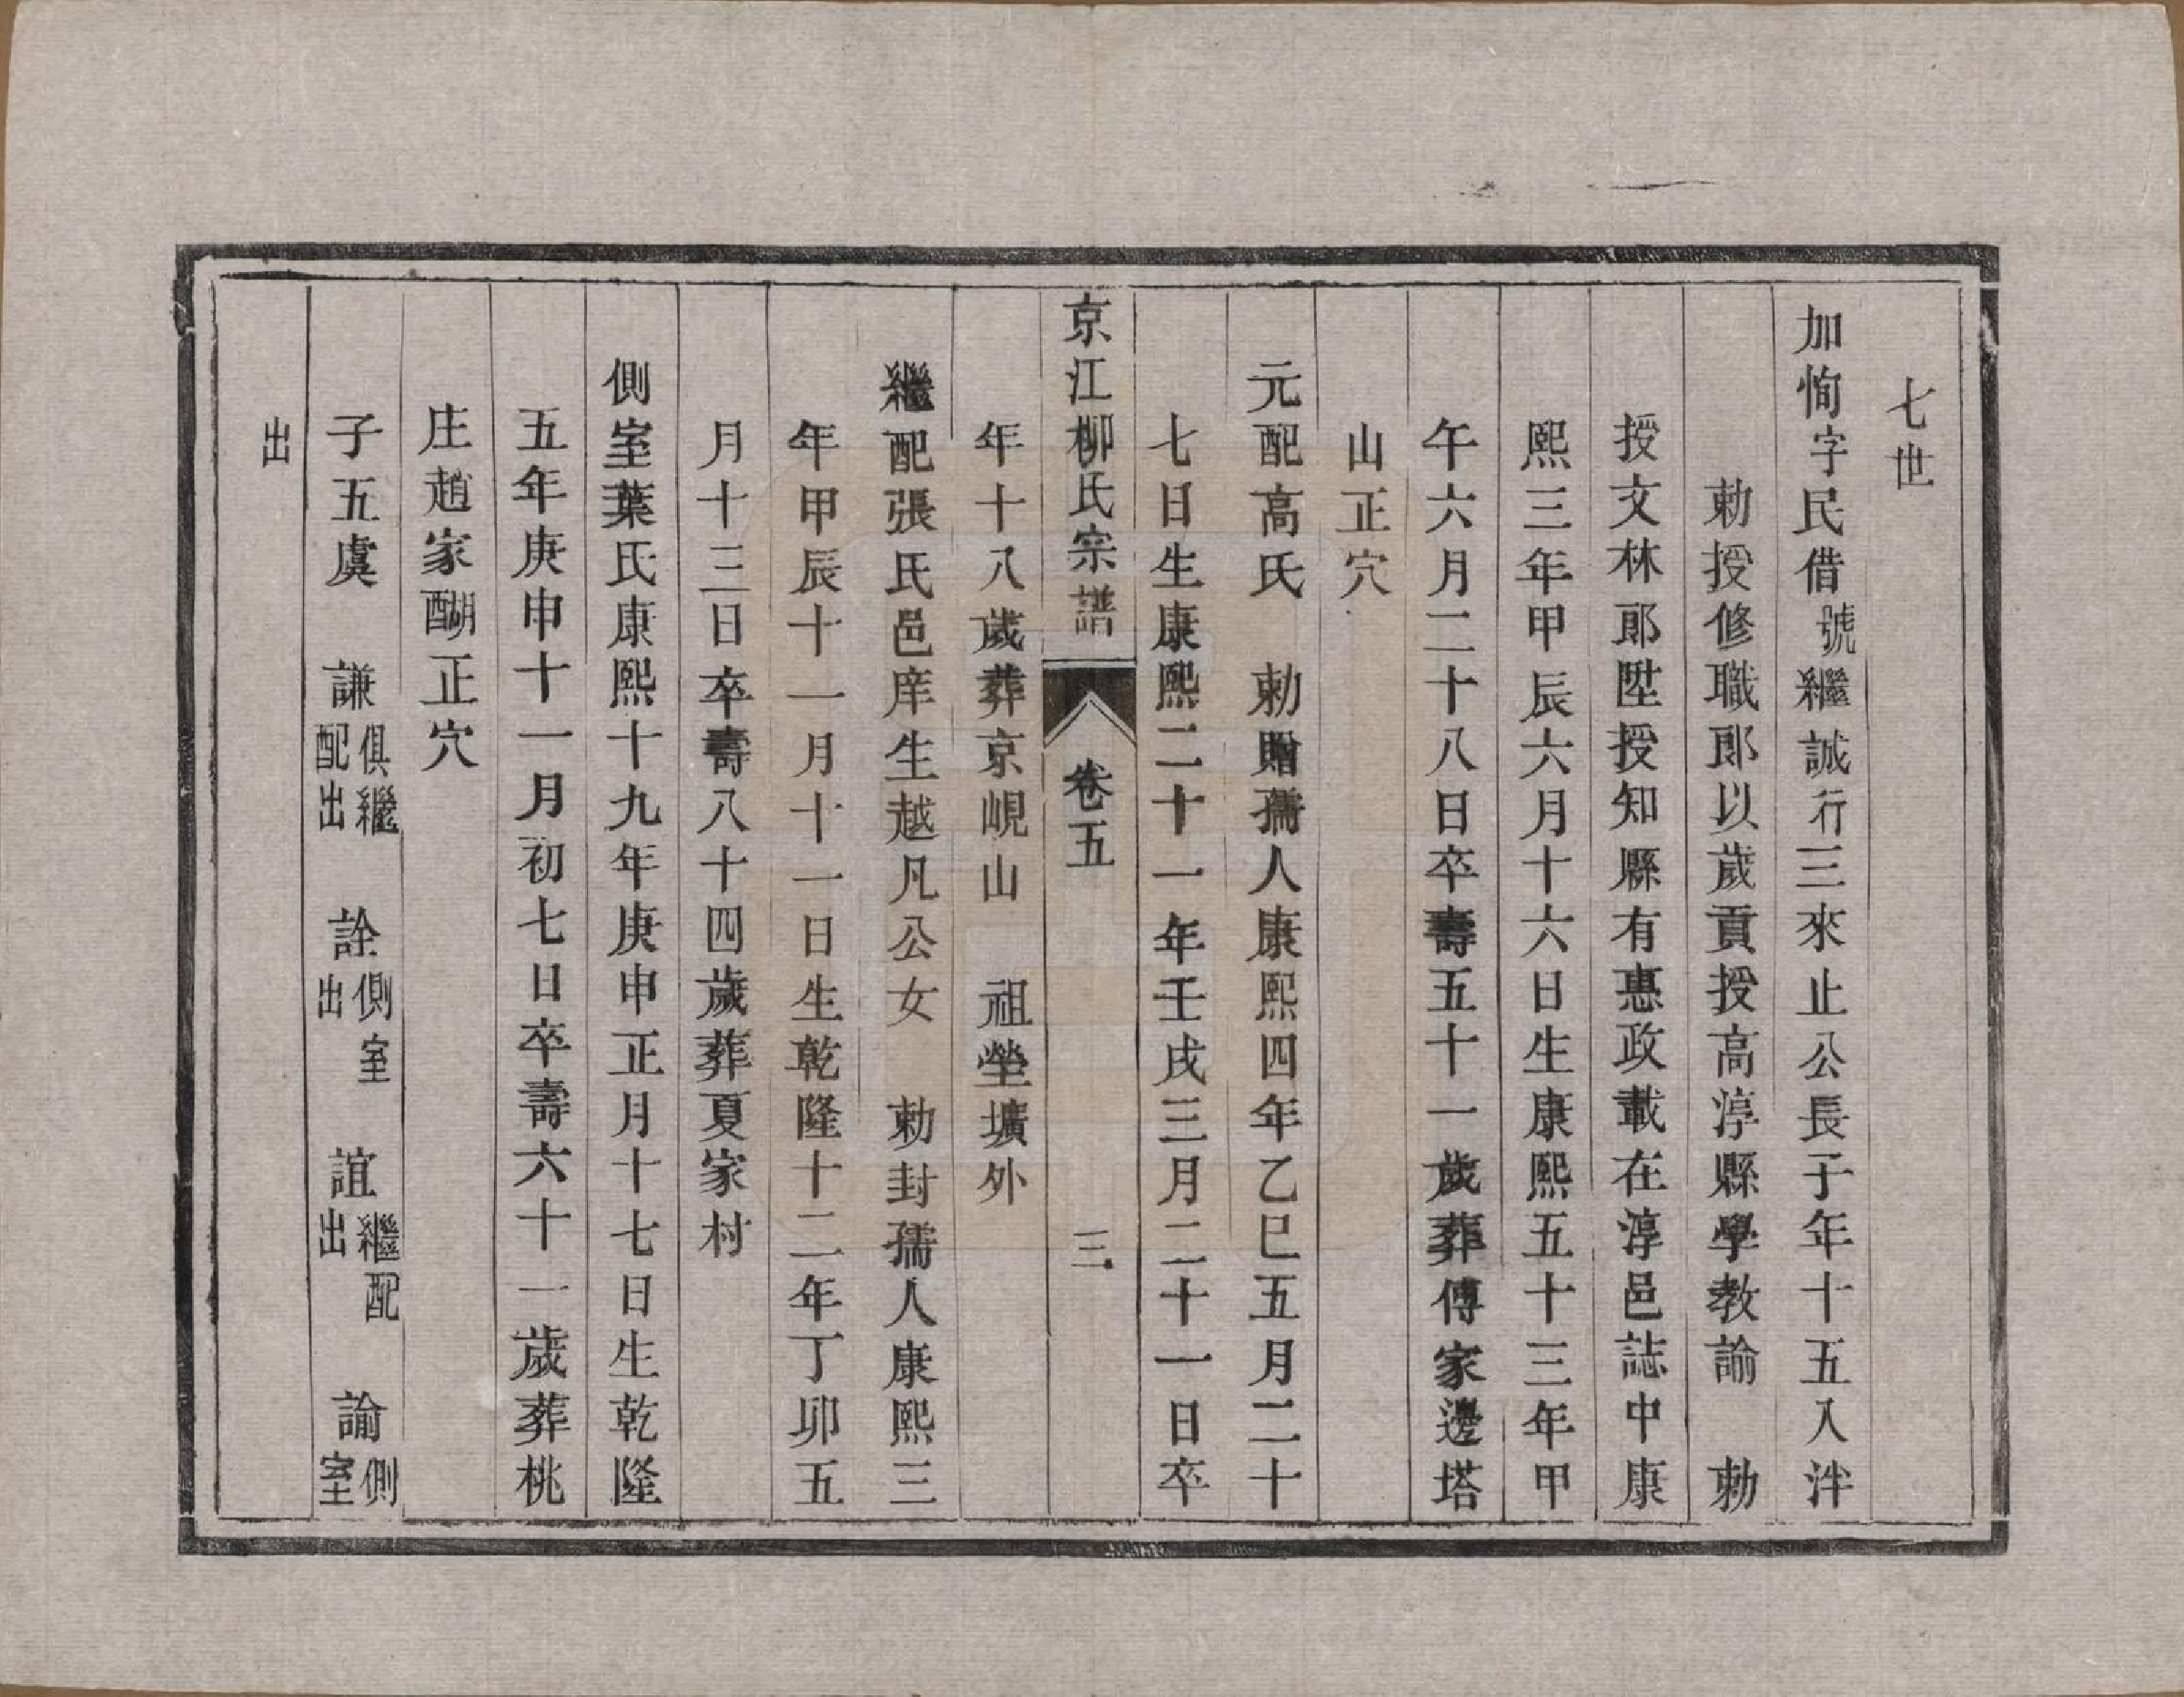 七世
加恂字民借號繼誠行三來止公長子年十五入泮
勅授修職郎以歲貢授高淳縣學教諭　勅
授文林郎陞授知縣有惠政載在淳邑誌中康
熙三年甲辰六月十六日生康熙五十三年甲
午六月二十八日卒壽五十一歲葬傅家邊塔
山正穴
元配高氏　勅贈孺人康熙四年乙巳五月二十
七日生康熙二十一年壬戌三月二十一日卒
年十八歲葬京峴山　祖塋壙外
京江柳氏宗譜　卷五　三
繼配張氏邑庠生越凡公女　勅封孺人康熙三
年甲辰十一月十一日生乾隆十二年丁卯五
月十三日卒壽八十四歲葬夏家村
側室葉氏康熙十九年庚申正月十七日生乾隆
五年庚申十一月初七日卒壽六十一歲葬桃
庄趙家醐正穴
子五虞　謙俱繼配出　詮側室出　誼繼配出　諭側室
出